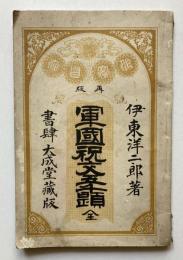 再版
伊東洋二郎著
軍國祝文案題 全
書肆 大成堂藏版